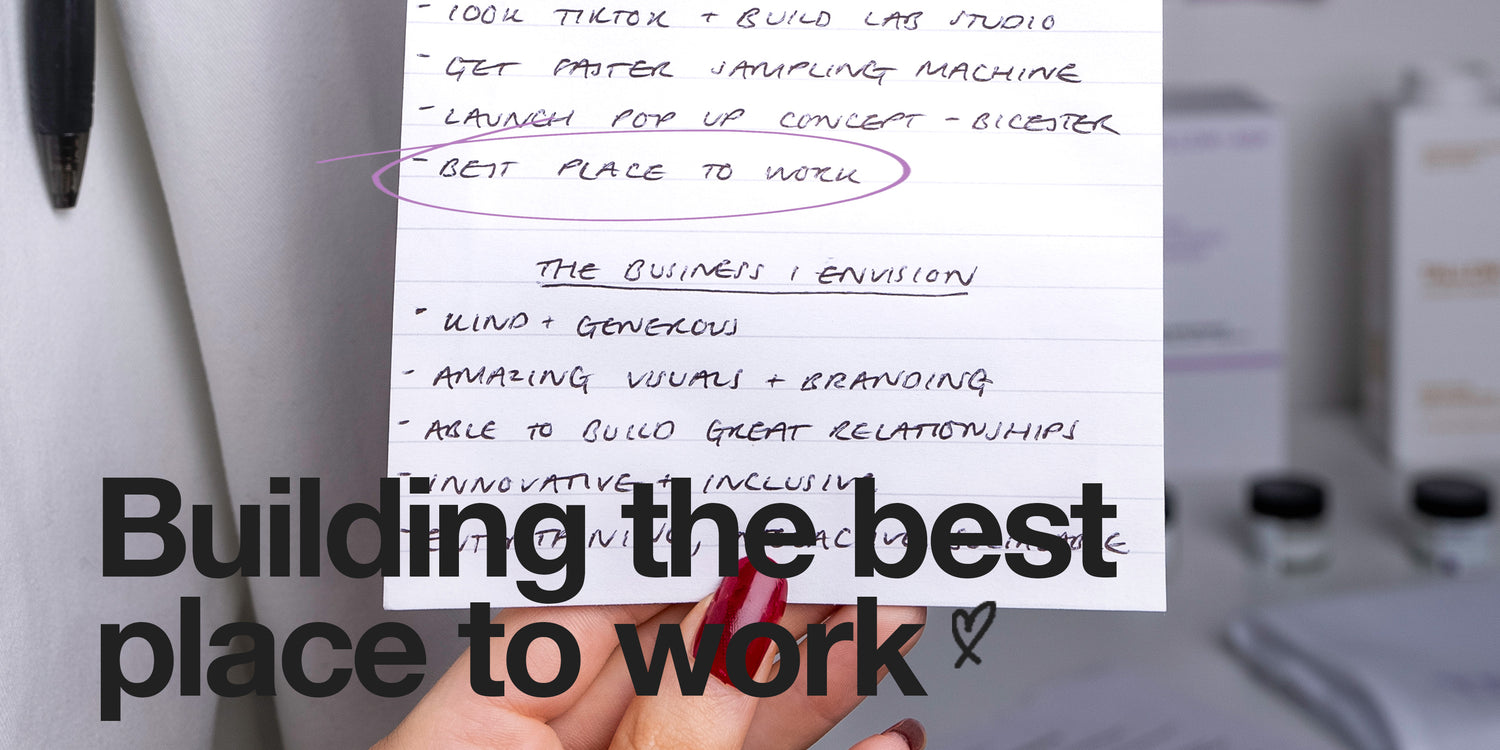 - 100K TIKTOK + BUILD LAB STUDIO
- GET FASTER SAMPLING MACHINE
- LAUNCH POP UP CONCEPT - BICESTER
- BEST PLACE TO WORK
THE BUSINESS I ENVISION
- KIND + GENEROUS
- AMAZING VISUALS + BRANDING
- ABLE TO BUILD GREAT RELATIONSHIPS
- INNOVATIVE + INCLUSIVE
- ENTERTAINING,
Building the best
place to work